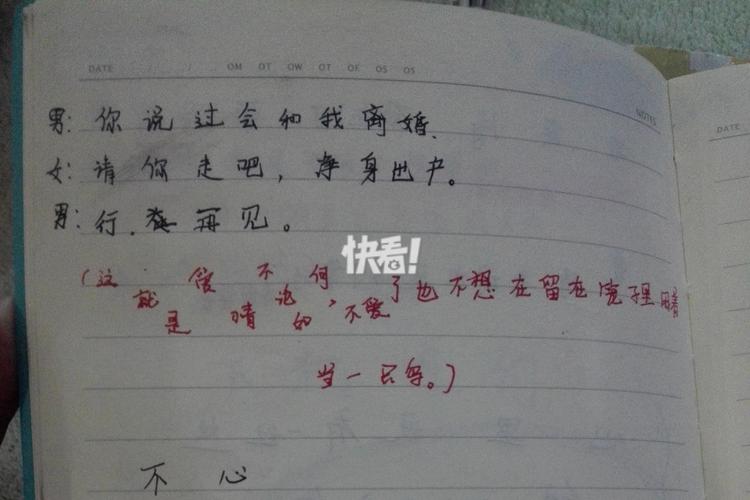 DATE OM OT OW OT OF OS OS
NOTES
男: 你说过会和我离婚.
女: 请你走吧，净身出户。
男: 行. 再见。
快看!
(这就是爱情不论的何，不爱了也不想在留在子里
当一只鸟。)
不 心
DATE